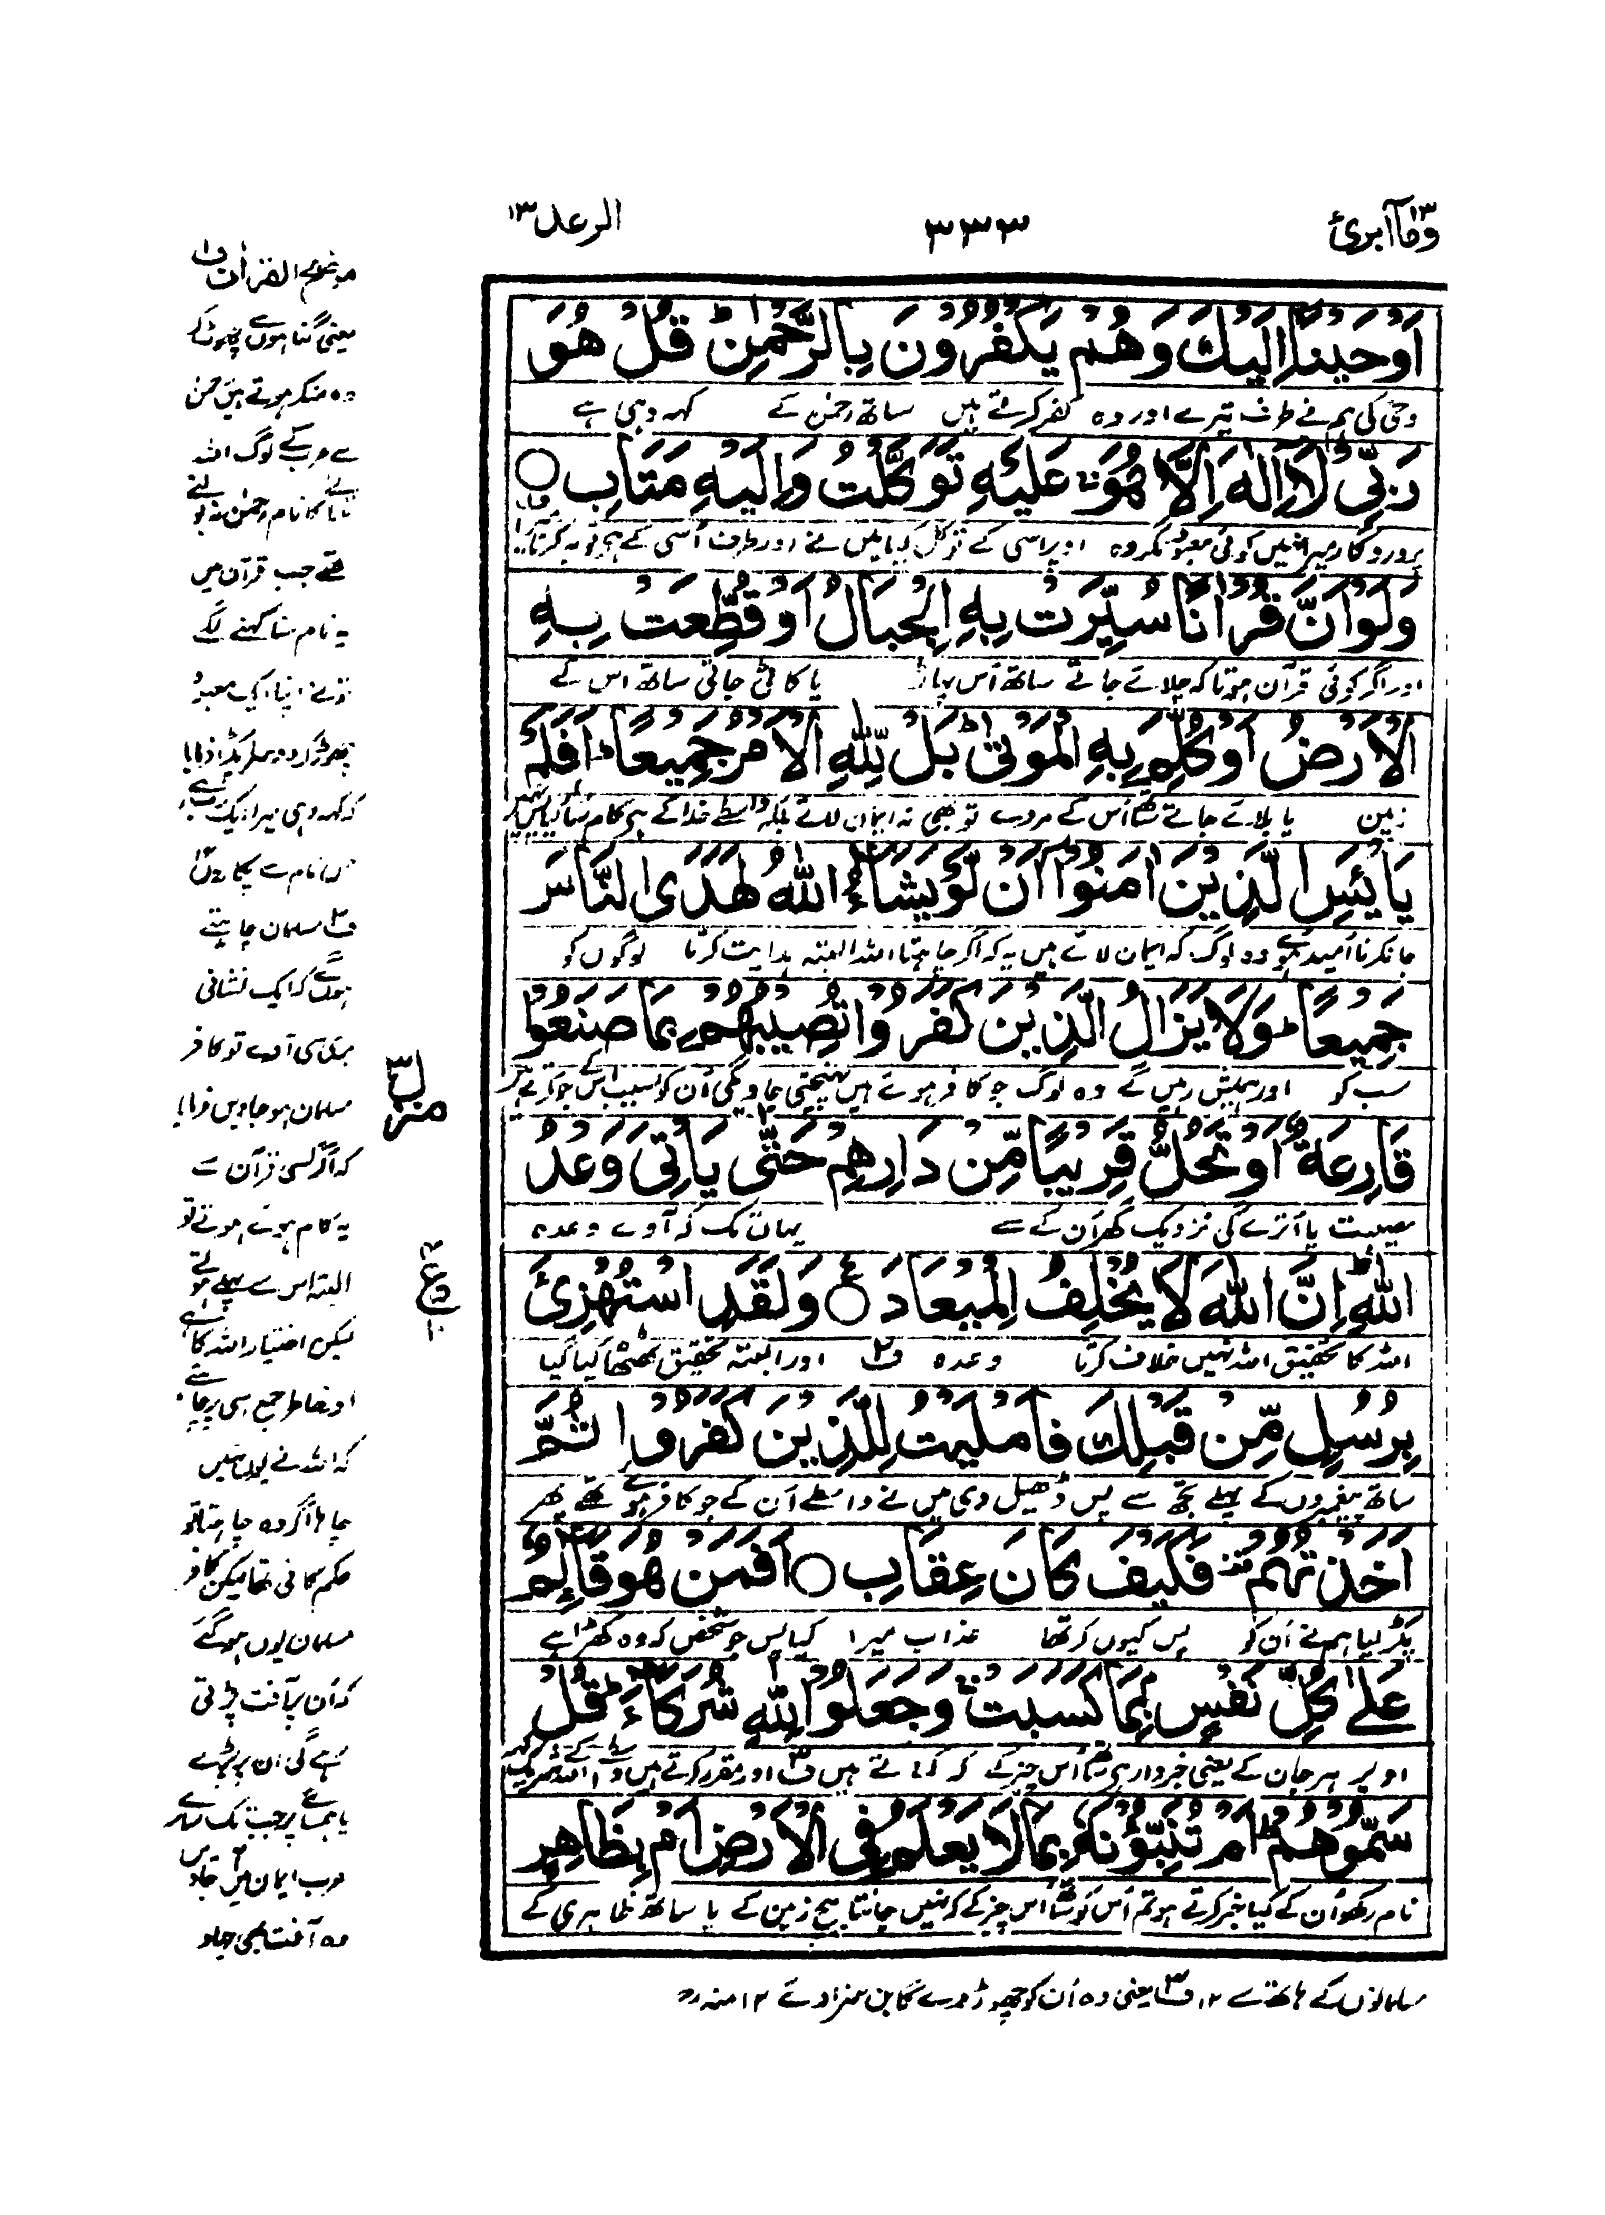 وَمَآ اُبَرِّئُ ١٣
٣٣٣
الرعد ١٣
اَوْحَيْنَآ اِلَيْكَ وَهُمْ يَكْفُرُوْنَ بِالرَّحْمٰنِ ؕ قُلْ هُوَ
وحی کی ہم نے طرف تیرے اور وہ کفر کرتے ہیں ساتھ رحمٰن کے کہہ وہی ہے
رَبِّيْ لَآ اِلٰهَ اِلَّا هُوَ ۚ عَلَيْهِ تَوَكَّلْتُ وَاِلَيْهِ مَتَابِ ○
پروردگار میرا نہیں کوئی معبود مگر وہ اوپر اسی کے توکل کیا میں نے اور طرف اُسی کے ہے توبہ کرنا میرا ف۱
وَلَوْ اَنَّ قُرْاٰنًا سُيِّرَتْ بِهِ الْجِبَالُ اَوْ قُطِّعَتْ بِهِ
اور اگر کوئی قرآن ہوتا کہ چلائے جاتے ساتھ اُس پہاڑ یا کاٹی جاتی ساتھ اس کے
الْاَرْضُ اَوْ كُلِّمَ بِهِ الْمَوْتٰى ؕ بَلْ لِّلّٰهِ الْاَمْرُ جَمِيْعًا ؕ اَفَلَمْ
زمین یا بلائے جاتے ساتھ اُس کے مردے تو بھی نہ ایمان لاتے بلکہ واسطے خدا کے ہے کام سارا کیا پس نہیں
يَايْئَسِ الَّذِيْنَ اٰمَنُوْٓا اَنْ لَّوْ يَشَآءُ اللّٰهُ لَهَدَى النَّاسَ
جانکر نا اُمید ہوئے وہ لوگ کہ ایمان لائے ہیں یہ کہ اگر چاہتا اللہ البتہ ہدایت کرتا لوگوں کو
جَمِيْعًا ؕ وَلَا يَزَالُ الَّذِيْنَ كَفَرُوْا تُصِيْبُهُمْ بِمَا صَنَعُوْا
سب کو اور ہمیش رہیں گے وہ لوگ جو کافر ہوئے ہیں پہنچتی جاویگی اُن کو بسبب اس کے جو کرتے ہیں
قَارِعَةٌ اَوْ تَحُلُّ قَرِيْبًا مِّنْ دَارِهِمْ حَتّٰى يَاْتِيَ وَعْدُ
مصیبت یا اُترے گی نزدیک گھر اُن کے سے یہاں تک کہ آوے وعدہ
اللّٰهِ ؕ اِنَّ اللّٰهَ لَا يُخْلِفُ الْمِيْعَادَ ○ وَلَقَدِ اسْتُهْزِئَ
اللہ کا تحقیق اللہ نہیں خلاف کرتا وعدہ ف۲ اور البتہ تحقیق ٹھٹھا کیا گیا
بِرُسُلٍ مِّنْ قَبْلِكَ فَاَمْلَيْتُ لِلَّذِيْنَ كَفَرُوْا ثُمَّ
ساتھ پیغمبروں کے پہلے تجھ سے پس ڈھیل دی میں نے واسطے اُن کے جو کافر ہوئے تھے پھر
اَخَذْتُهُمْ ۫ فَكَيْفَ كَانَ عِقَابِ ○ اَفَمَنْ هُوَ قَآئِمٌ
پکڑ لیا ہم نے اُن کو پس کیوں کر تھا عذاب میرا کیا پس جو شخص کہ وہ کھڑا ہے
عَلٰى كُلِّ نَفْسٍۭ بِمَا كَسَبَتْ ۚ وَجَعَلُوْا لِلّٰهِ شُرَكَآءَ ؕ قُلْ
اوپر ہر جان کے یعنی خبردار ہے ساتھ اُس چیز کے کہ کماتے ہیں ف۳ اور مقرر کرتے ہیں واسطے اللہ کے شریک کہہ
سَمُّوْهُمْ ؕ اَمْ تُنَبِّئُوْنَهٗ بِمَا لَا يَعْلَمُ فِي الْاَرْضِ اَمْ بِظَاهِرٍ
نام رکھو اُن کے کیا خبر کرتے ہو تم اُس کو ساتھ اس چیز کے کہ نہیں جانتا بیچ زمین کے یا ساتھ ظاہری کے
موضح القرآن ف۱
یعنی گناہوں سے چھوٹ کر
وہ منکر ہوتے ہیں رحمٰن
سے عرب کے لوگ اللہ
کا نام رحمٰن نہ بولتے
تھے جب قرآن میں
یہ نام سنا کہنے لگے
تو نے اپنا ایک معبود
چھوڑ کر دوسرا پکڑا فرمایا
کہ کہہ وہی میرا ایک رب ہے
نام سے پکاروں
ف۲ مسلمان چاہتے
ہوں گے کہ ایک نشانی
بڑی سی آوے تو کافر
مسلمان ہو جاویں فرمایا
کہ اگر کسی قرآن سے
یہ کام ہوئے ہوتے تو
البتہ اس سے پہلے ہوتے
لیکن اختیار اللہ کا ہے
اور خاطر جمع اسی پر چاہئے
کہ اللہ نے یوں نہیں
چاہا اگر وہ چاہتا تو
حکم کافی تھا لیکن کافر
مسلمان یوں ہوں گے
کہ اُن پر آفت پڑتی
رہے گی ان پر پڑے
یا ہمسائے پر جب تک سارے
عرب ایمان میں آجاویں
وہ آفت یہی جہاد
منزل ٣
مسلمانوں کے ہاتھ سے ۱۲ ف۳ یعنی وہ اُن کو چھوڑ دے گا بن سزا دئے ۱۲ منہ رح